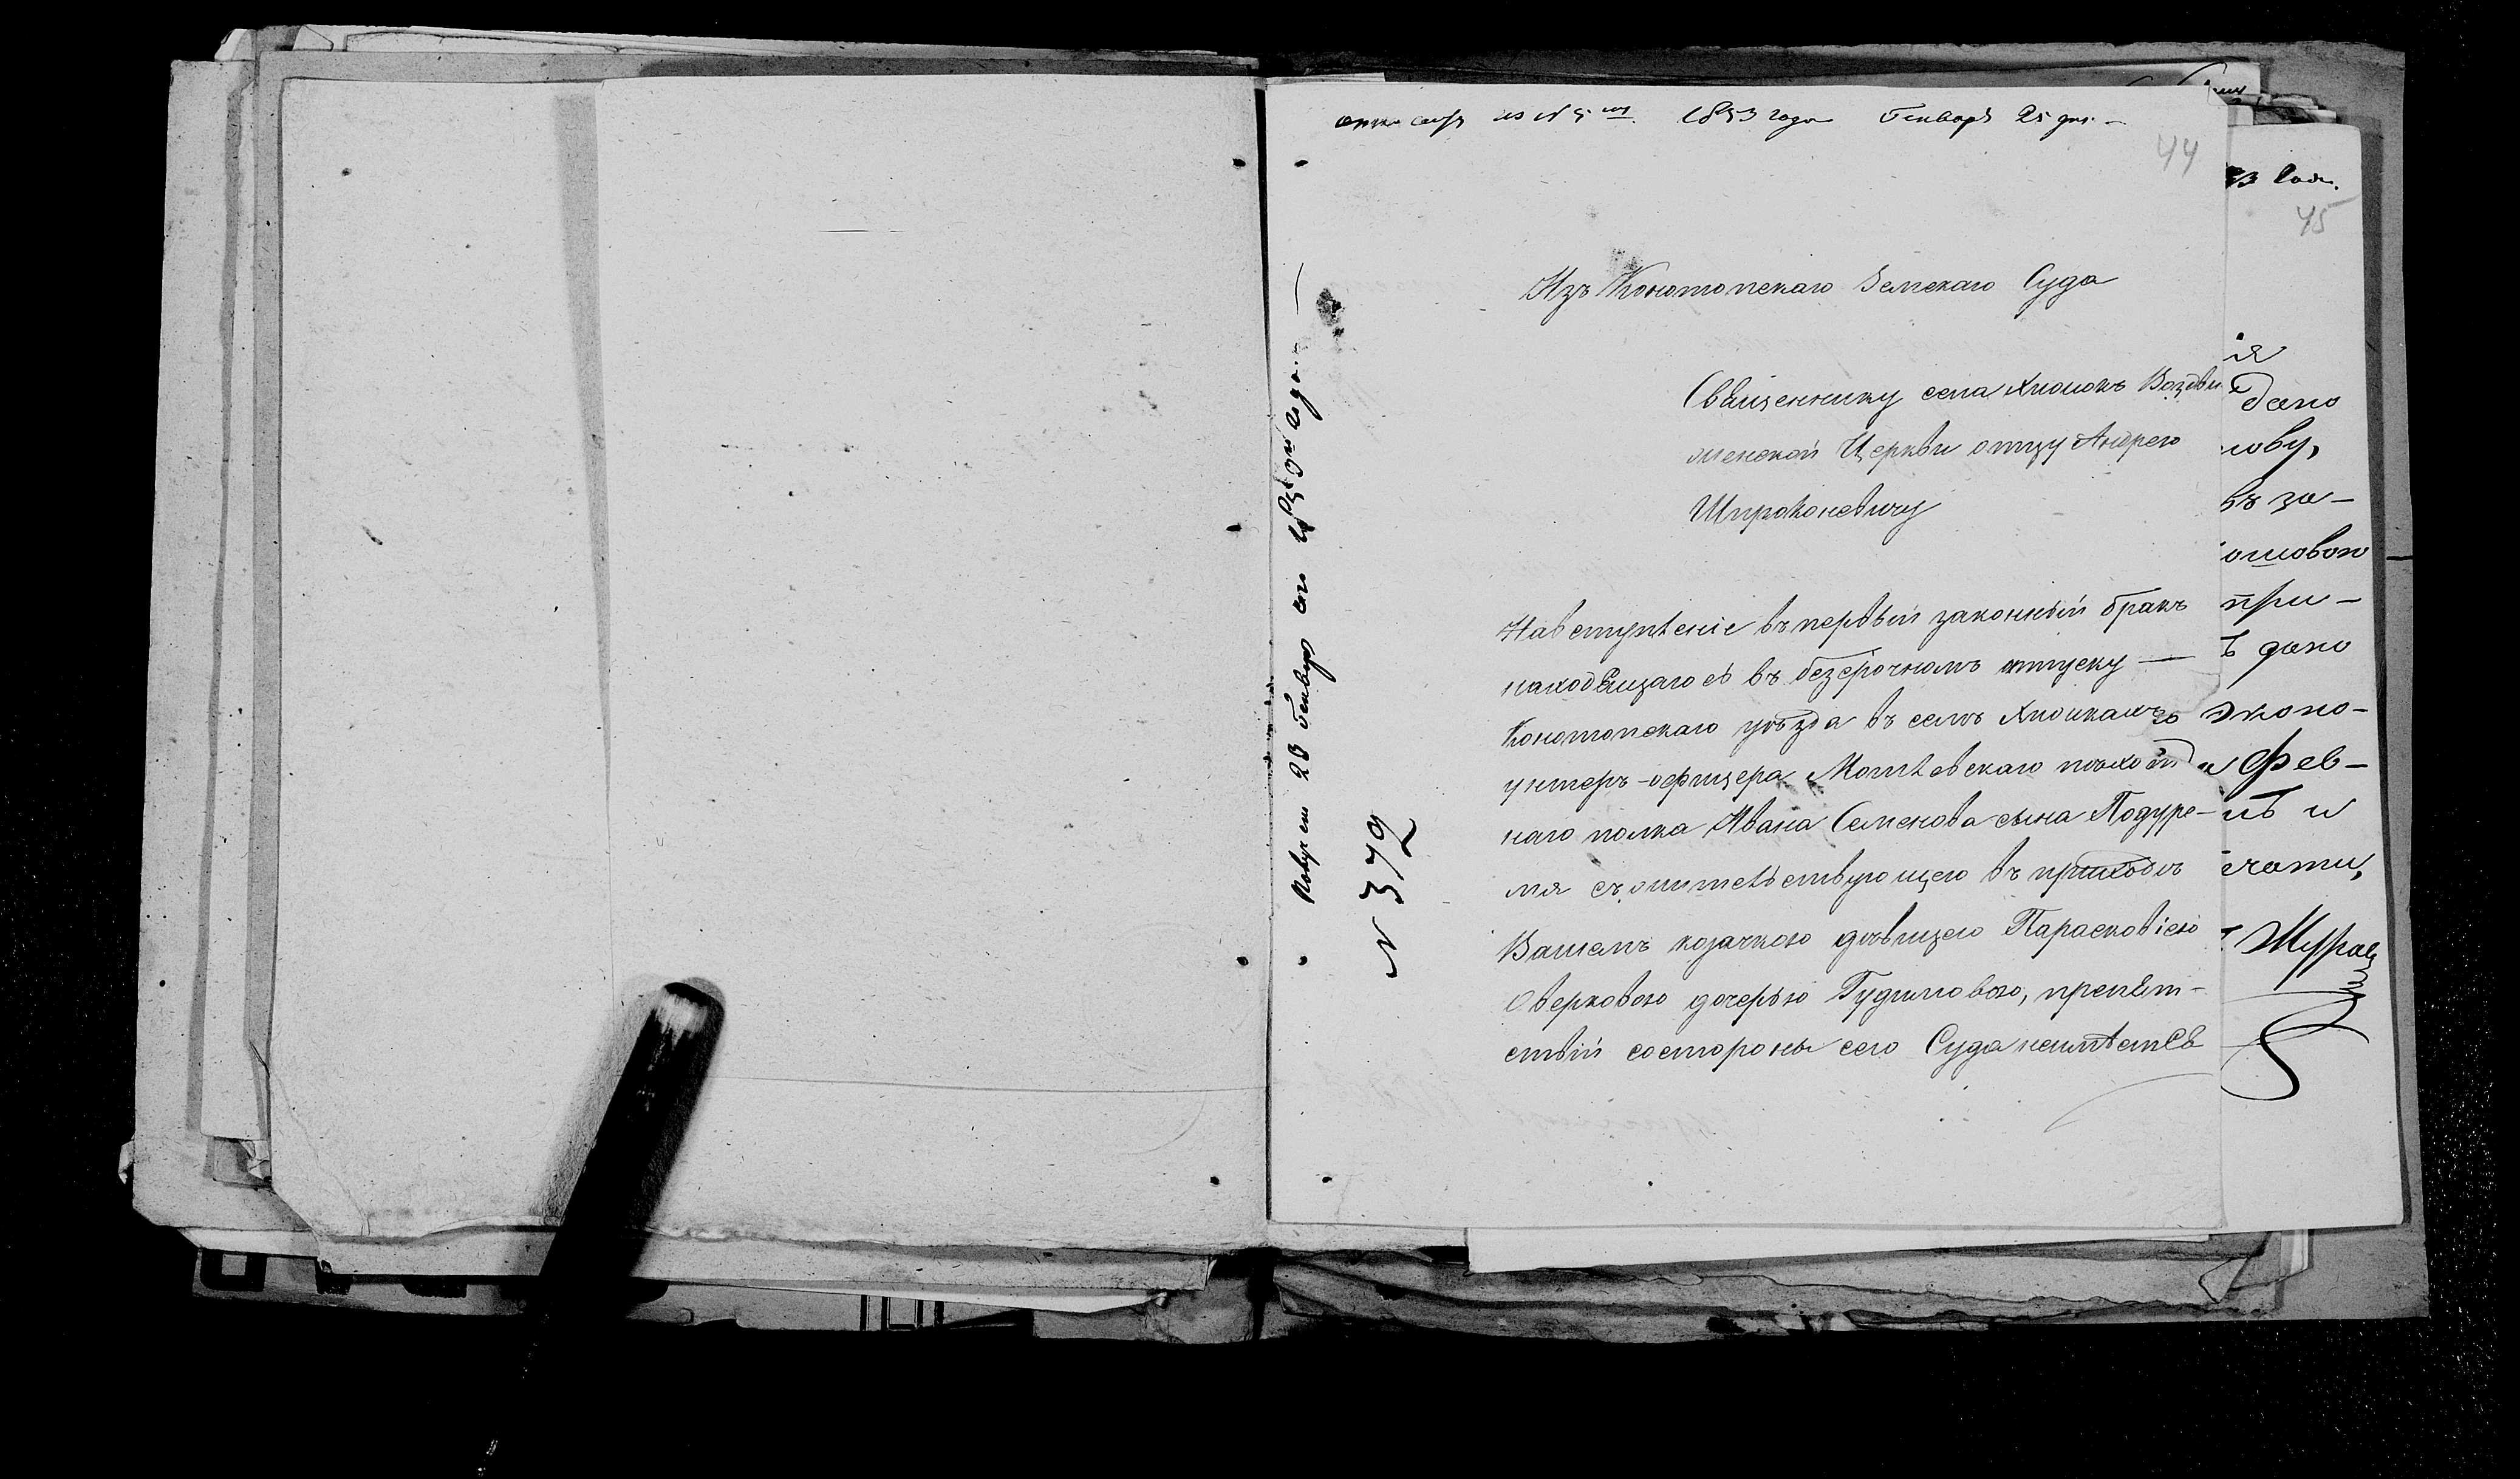 1853 года Генваря 25 дня. –
44
Изъ Конотопскаго Земскаго Суда
Священнику села Хижокъ Воздви
женской Церкви отцу Андрею
Шпроконевичу
На вступленіе въ первый законный бракъ
находящагося въ безсрочномъ отпуску —
Конотопскаго уѣзда въ селѣ Хижкахъ
унтеръ-офицера Могилевскаго пѣхот
наго полка Ивана Семенова сына Подуре-
мя съ жительствующею въ приходѣ
Вашемъ козачкою дѣвицею Парасковіею
Оверковою дочерью Гудимовою, препят-
ствій состороны сего Суда неимѣется
N 372
28 Генваря
45
дано
лову,
въ за-
при-
ъ дано
эконо-
и Фев-
и
ечати,